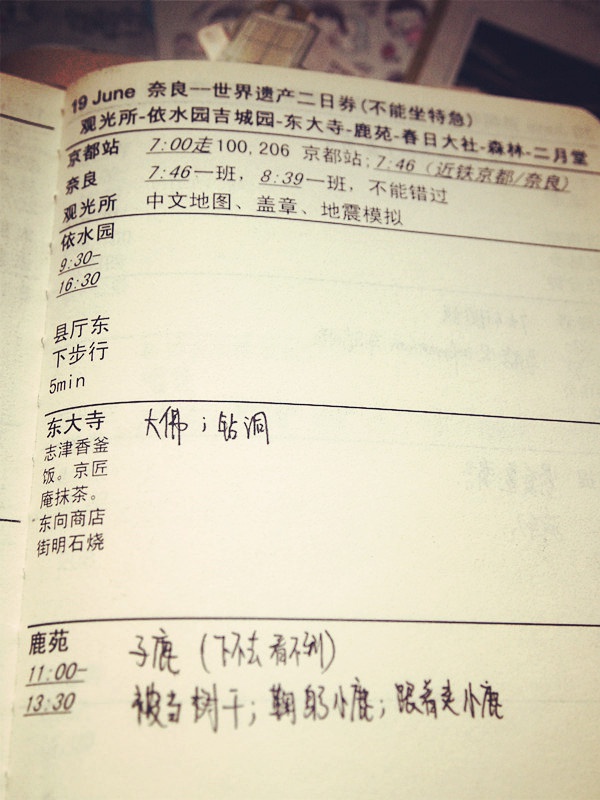 19 June 奈良--世界遗产二日券(不能坐特急)
观光所-依水园吉城园-东大寺-鹿苑-春日大社-森林-二月堂
京都站 7:00走100,206 京都站;7:46（近铁京都/奈良）
奈良 7:46一班，8:39一班，不能错过
观光所 中文地图、盖章、地震模拟
依水园
9:30-
16:30
县厅东
下步行
5min
东大寺 大佛；钻洞
志津香釜
饭。京匠
庵抹茶。
东向商店
街明石烧
鹿苑 子鹿（下不去看不到）
11:00- 被当树干；鞠躬小鹿；跟着走小鹿
13:30